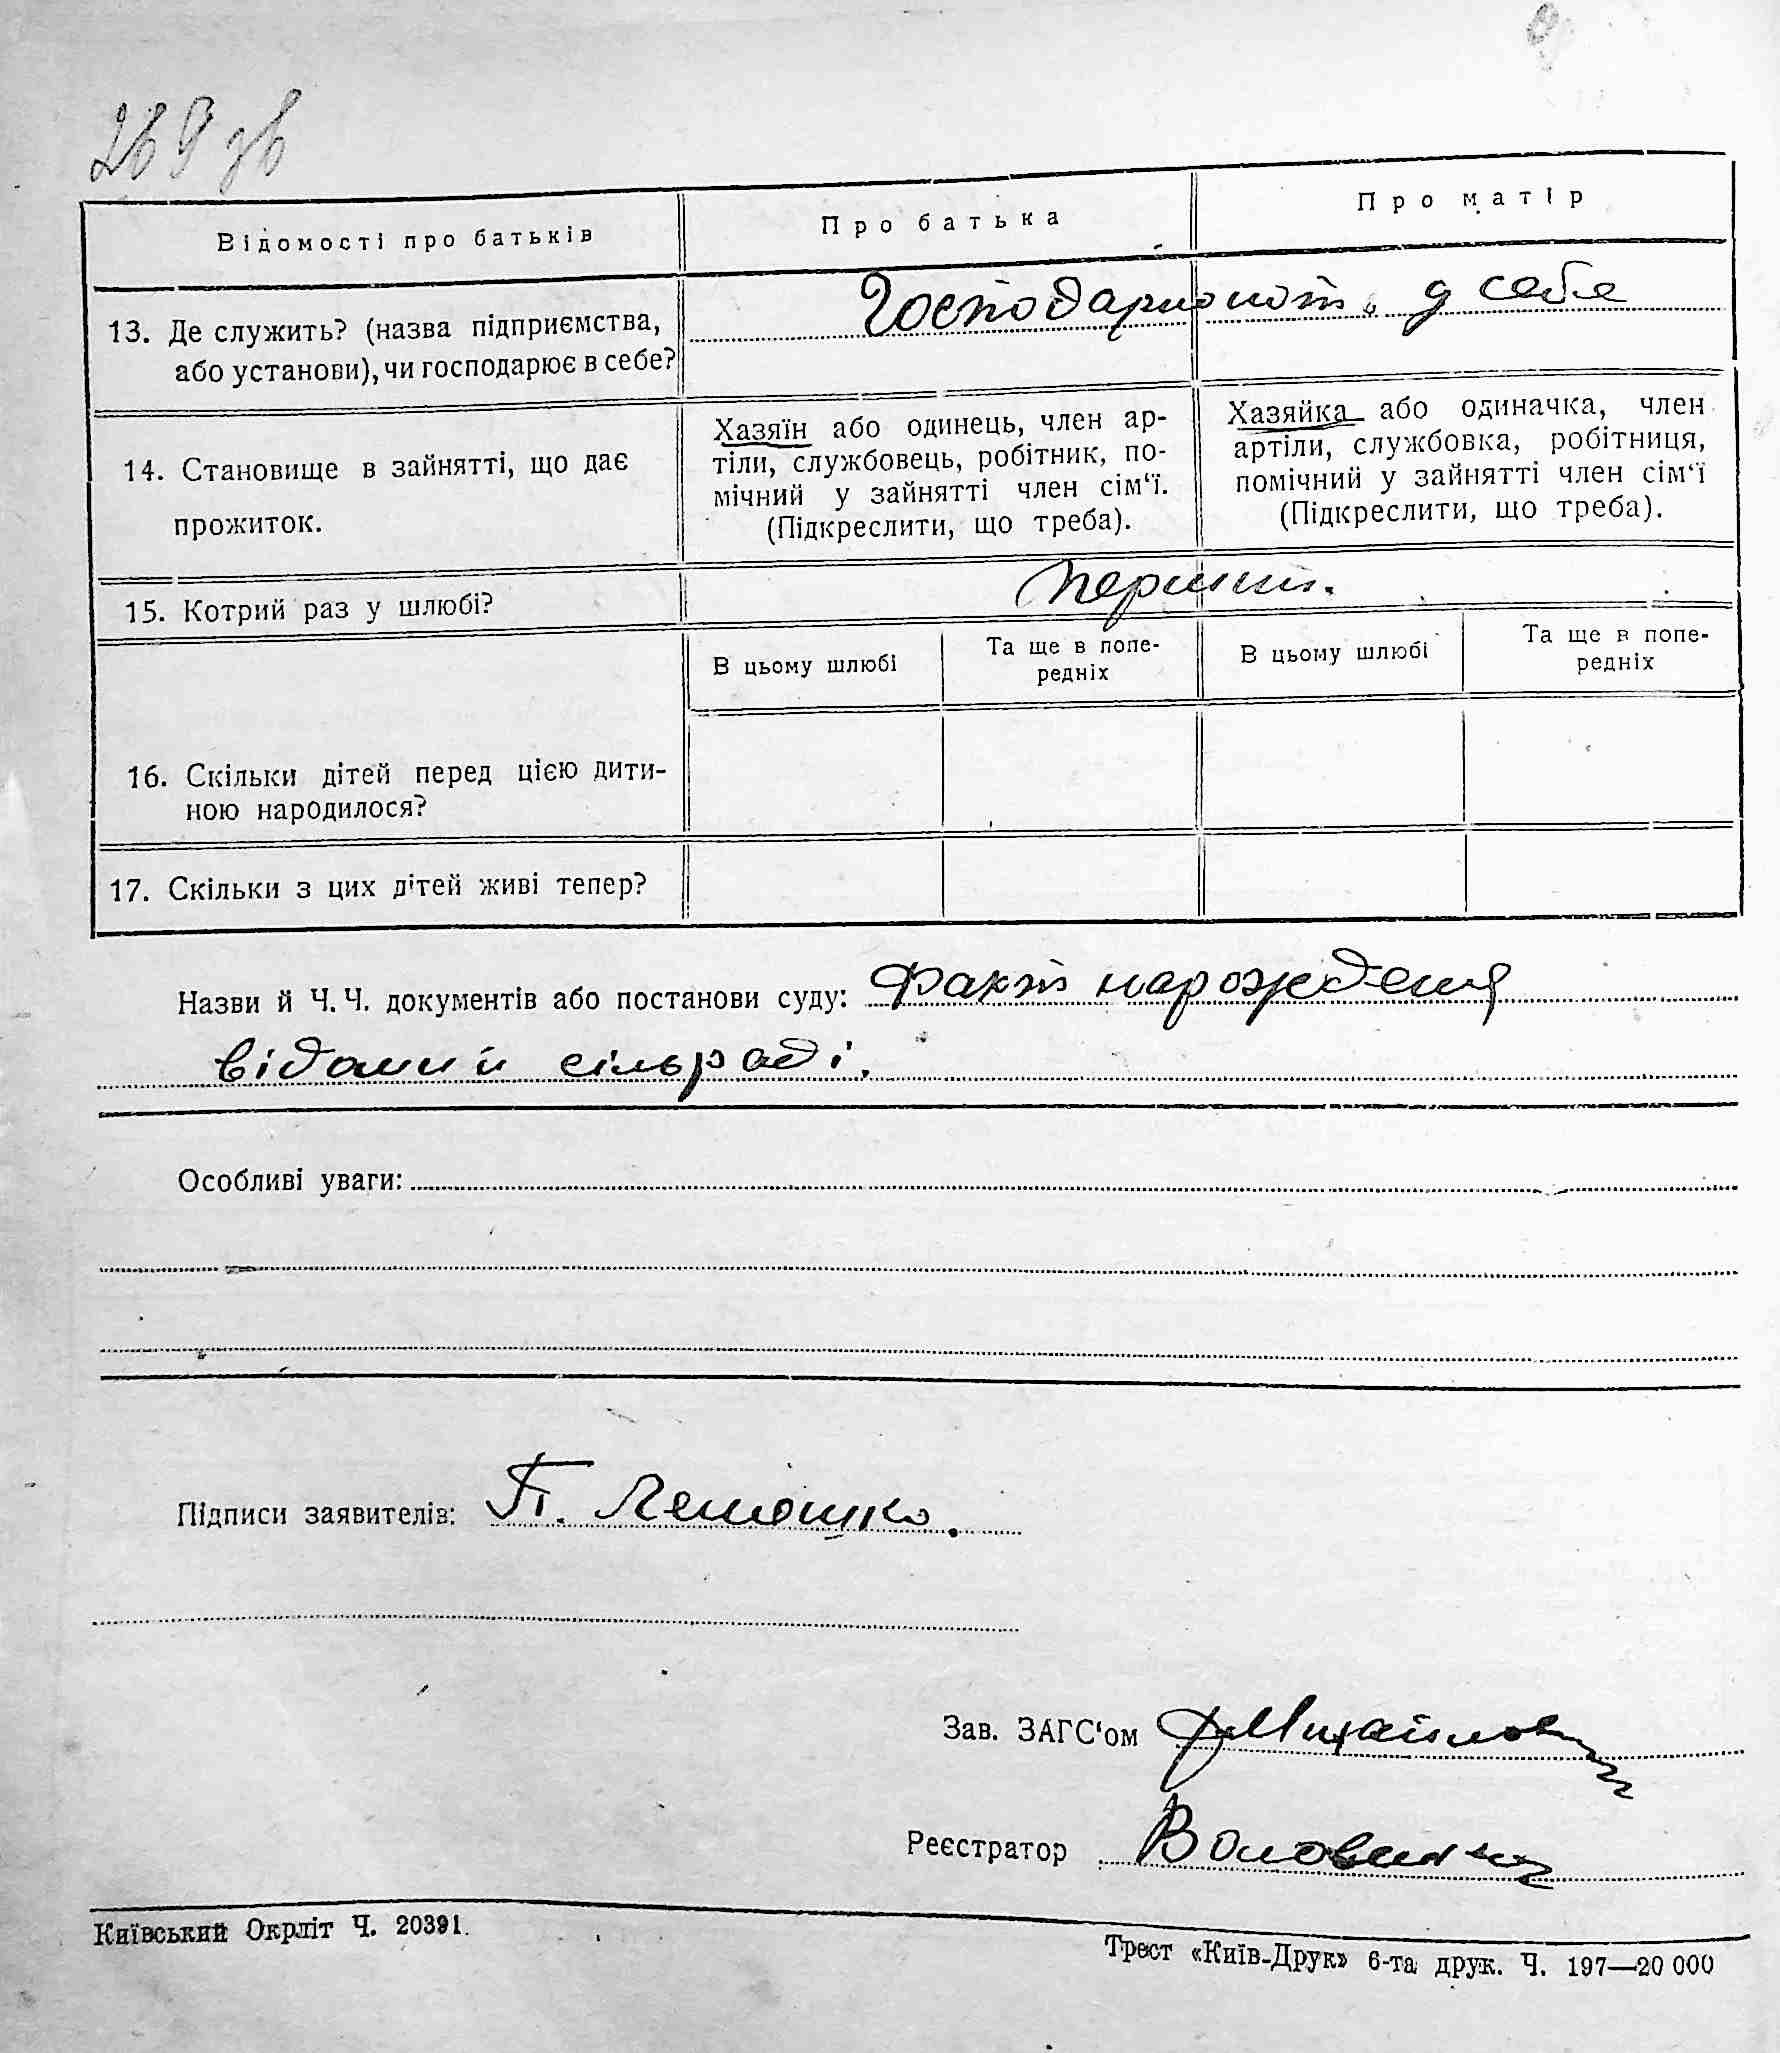 269 зв
Відомості про батьків
Про батька
Про матір
13. Де служить? (назва підприємства,
або установи), чи господарює в себе?
Господарюють у себе
14. Становище в зайнятті, що дає
прожиток.
Хазяїн або одинець, член ар-
тіли, службовець, робітник, по-
мічний у зайнятті член сім‘ї.
(Підкреслити, що треба).
Хазяйка або одиначка, член
артіли, службовка, робітниця,
помічний у зайнятті член сім‘ї
(Підкреслити, що треба).
15. Котрий раз у шлюбі?
В цьому шлюбі
Та ще в попе-
редніх
В цьому шлюбі
Та ще в попе-
редніх
16. Скільки дітей перед цією дити-
ною народилося?
17. Скільки з цих дітей живі тепер?
Назви й Ч. Ч. документів або постанови суду: Факт народження
відомий сільраді.
Особливі уваги:
Підписи заявителів: П.
Зав. ЗАГС‘ом
Реєстратор
Київський Окрліт Ч. 20391.
Трест «Київ-Друк» 6-та друк. Ч. 197—20 000